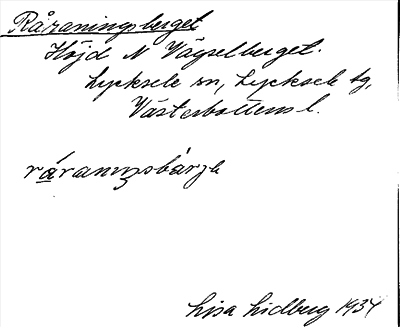 Råraningsberget
Höjd N Vägselberget.
Lycksele sn, Lycksele tg,
Västerbottens l.
råranıŋsbärjə
Lisa Lidberg 1934